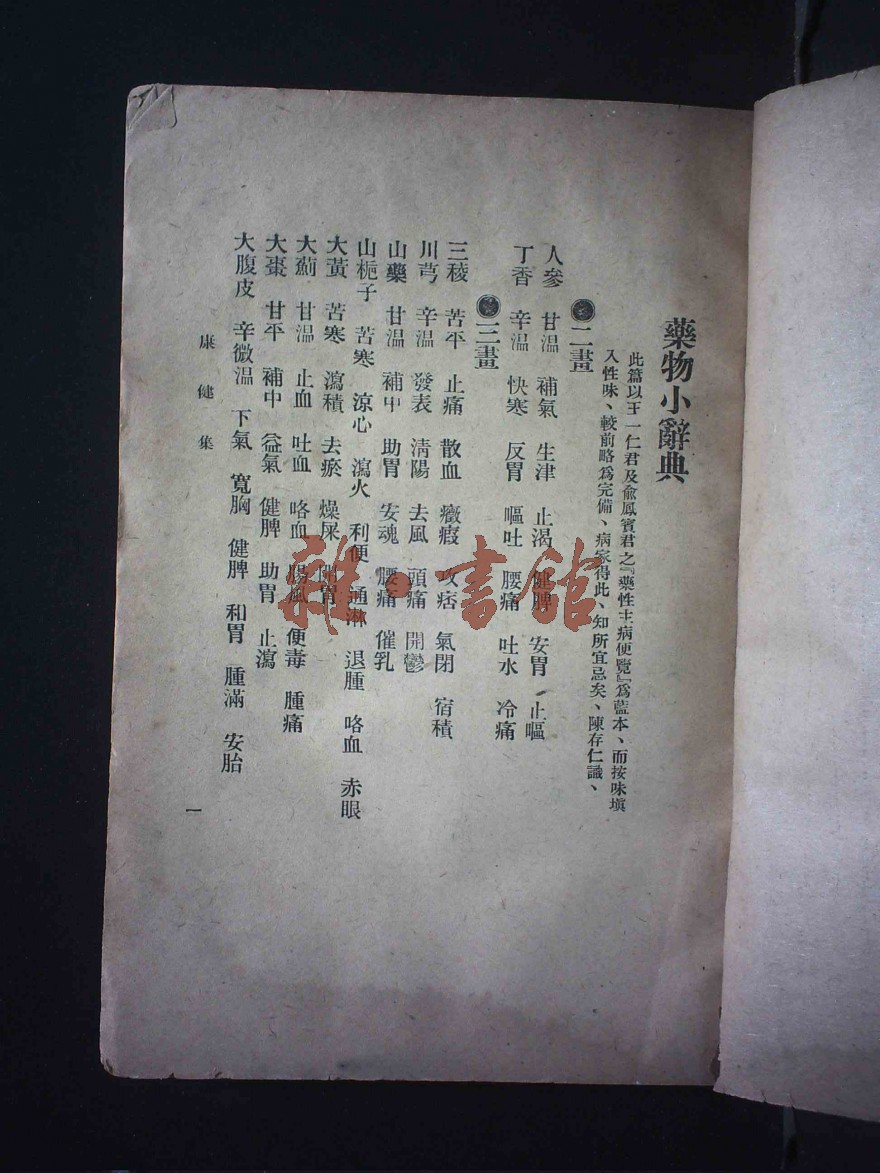 藥物小辭典
此篇以王一仁君及俞鳳賓君之『藥性主病便覽』爲藍本、而按味塡
入性味、較前略爲完備、病家得此、知所宜忌矣、陳存仁識、
二畫
人參 甘温 補氣 生津 止渴 健脾 安胃 止嘔
丁香 辛温 快寒 反胃 嘔吐 腰痛 吐水 冷痛
三畫
三稜 苦平 止痛 散血 癥瘕 攻痞 氣閉 宿積
川芎 辛温 發表 清陽 去風 頭痛 開鬱
山藥 甘温 補中 助胃 安魂 腰痛 催乳
山梔子 苦寒 涼心 瀉火 利便 通淋 退腫 咯血 赤眼
大黃 苦寒 瀉積 去瘀 燥屎 開胃
大薊 甘温 止血 吐血 咯血 腸風 便毒 腫痛
大棗 甘平 補中 益氣 健脾 助胃 止瀉
大腹皮 辛微温 下氣 寬胸 健脾 和胃 腫滿 安胎
康健集
一
雜·書館